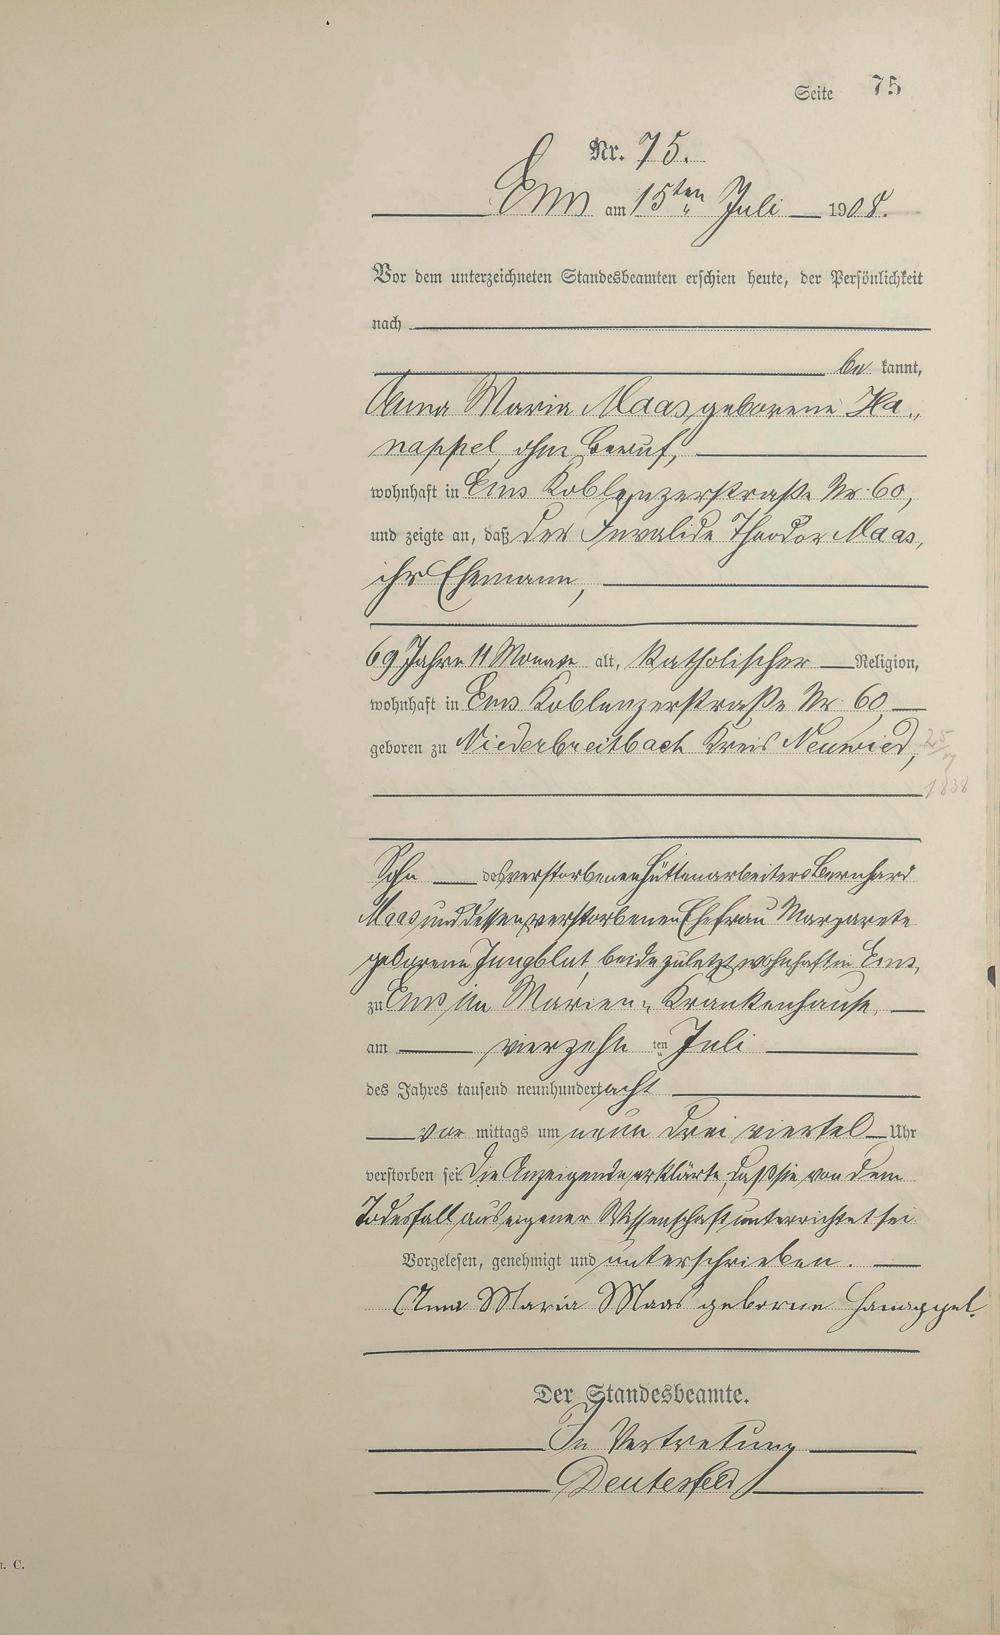 Seite 75
Nr. 75.
Ems am 15ten Juli 1908.
Vor dem unterzeichneten Standesbeamten erschien heute, der Persönlichkeit
nach
be kannt,
Anna Maria Maas geborene Ha„
nappel, ohne Beruf,
wohnhaft in Ems Koblenzerstraße Nr. 60,
und zeigte an, daß der Invalide Theodor Maas,
ihr Ehemann,
69 Jahre 11 Monate alt, katholischer Religion,
wohnhaft in Ems Koblenzerstraße Nr. 60
geboren zu Niederbreitbach Kreis Neuwied,
25/7
1838
Sohn des verstorbenen Hüttenarbeiters Bernhard
Maas und dessen verstorbenen Ehefrau Margarete
geborene Jungblut beide zuletzt wohnhaft in Ems,
zu Ems im Marien„ Krankenhause,
am vierzehn ten Juli
des Jahres tausend neunhundert acht
vor mittags um neun drei viertel Uhr
verstorben sei. Die Anzeigende erklärte, daß sie von dem
Todesfall aus eigener Wissenschaft unterrichtet sei.
Vorgelesen, genehmigt und unterschrieben.
Anna Maria Maas geborne Hanappel.
Der Standesbeamte.
In Vertretung
Deutesfeld